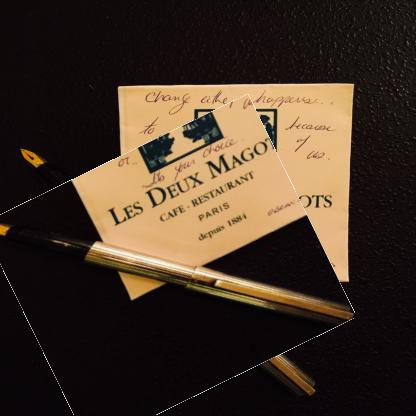 Change either happens...
to
because
or..
of
us.
Its your choice.
LES DEUX MAGOT
OTS
CAFE - RESTAURANT
PARIS
depuis 1884